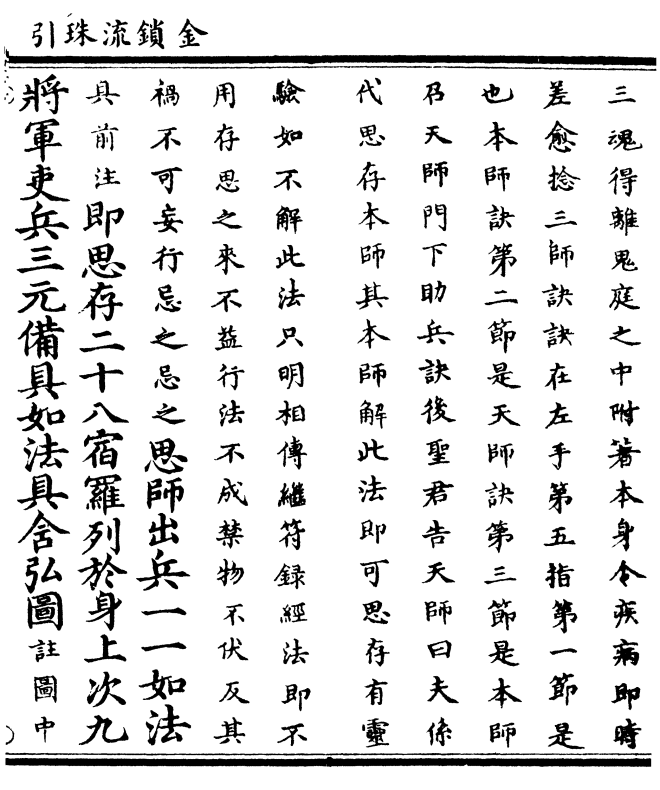 金鎖流珠引
三魂得離鬼庭之中附著本身令疾病即時
差愈捻三師訣訣在左手第五指第一節是
也本師訣第二節是天師訣第三節是本師
乃天師門下助兵訣後聖君告天師曰夫係
代思存本師其本師解此法即可思存有靈
驗如不解此法只明相傳繼符録經法即不
用存思之來不益行法不成禁物不伏反其
禍不可妄行忌之忌之思師出兵一一如法
具前注即思存二十八宿羅列於身上次九
將軍吏兵三元備具如法具含弘圖註圖中